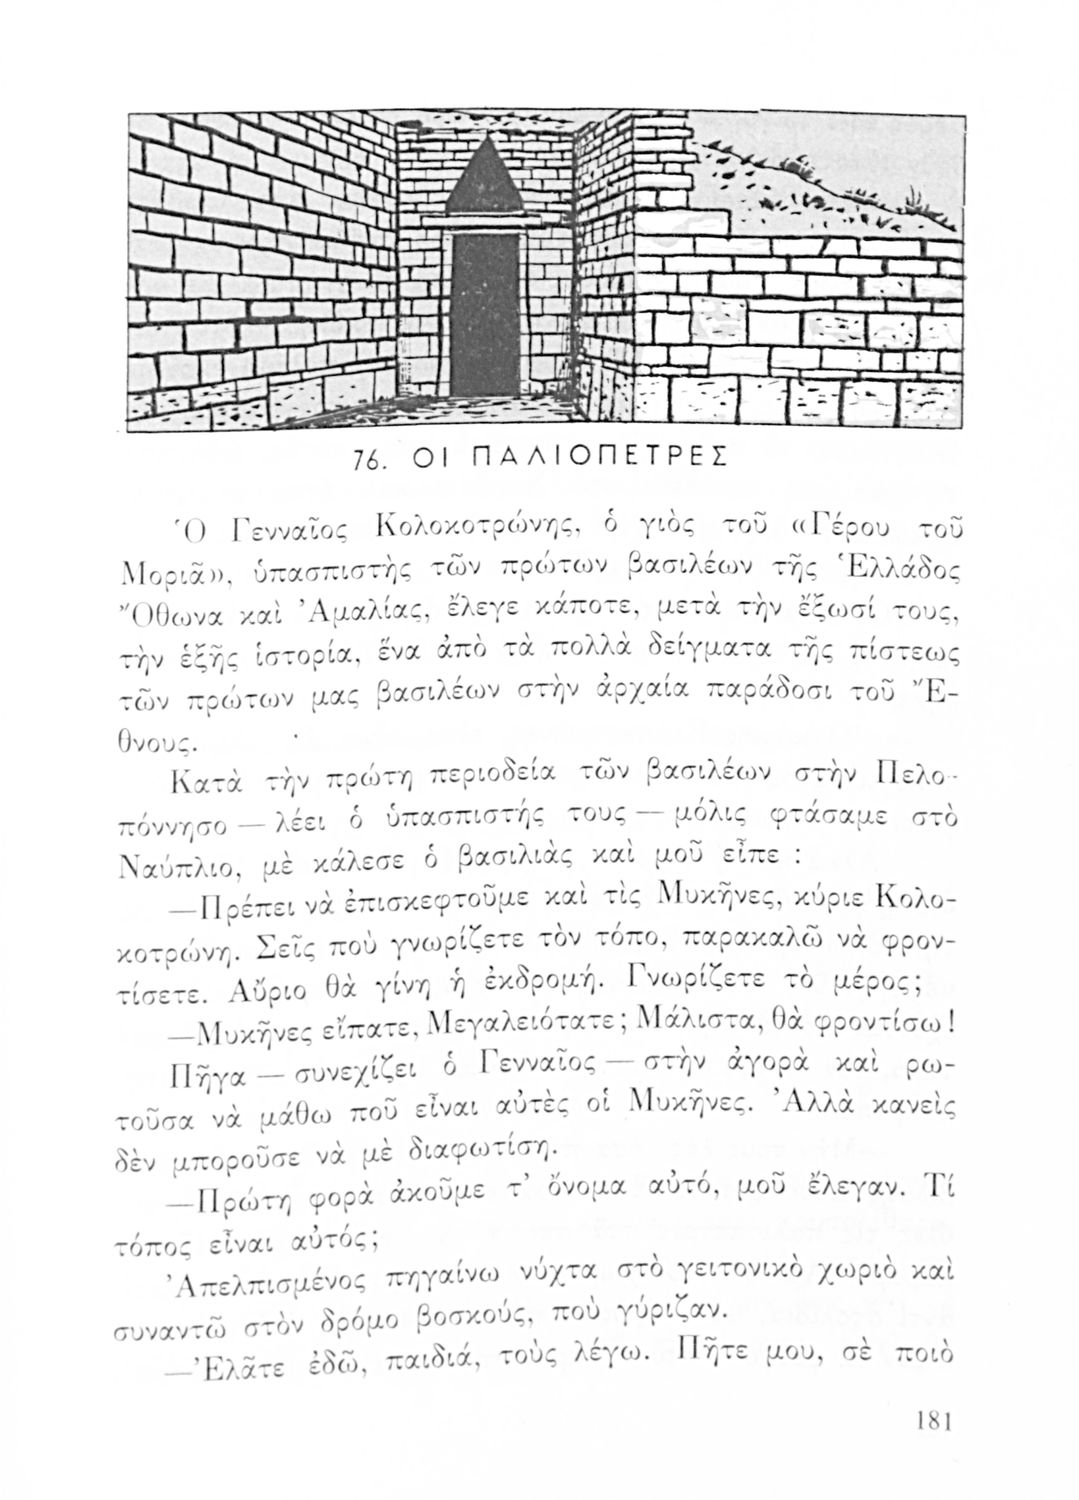 76. ΟΙ ΠΑΛΙΟΠΕΤΡΕΣ
Ὁ Γενναῖος Κολοκοτρώνης, ὁ γιὸς τοῦ «Γέρου τοῦ
Μοριᾶ», ὑπασπιστὴς τῶν πρώτων βασιλέων τῆς Ἑλλάδος
Ὄθωνα καὶ Ἀμαλίας, ἔλεγε κάποτε, μετὰ τὴν ἔξωσί τους,
τὴν ἑξῆς ἱστορία, ἕνα ἀπὸ τὰ πολλὰ δείγματα τῆς πίστεως
τῶν πρώτων μας βασιλέων στὴν ἀρχαία παράδοσι τοῦ Ἔ-
θνους.
Κατὰ τὴν πρώτη περιοδεία τῶν βασιλέων στὴν Πελο-
πόννησο — λέει ὁ ὑπασπιστής τους — μόλις φτάσαμε στὸ
Ναύπλιο, μὲ κάλεσε ὁ βασιλιὰς καὶ μοῦ εἶπε :
—Πρέπει νὰ ἐπισκεφτοῦμε καὶ τὶς Μυκῆνες, κύριε Κολο-
κοτρώνη. Σεῖς ποὺ γνωρίζετε τὸν τόπο, παρακαλῶ νὰ φρον-
τίσετε. Αὔριο θὰ γίνη ἡ ἐκδρομή. Γνωρίζετε τὸ μέρος;
—Μυκῆνες εἴπατε, Μεγαλειότατε; Μάλιστα, θὰ φροντίσω!
Πῆγα — συνεχίζει ὁ Γενναῖος — στὴν ἀγορὰ καὶ ρω-
τοῦσα νὰ μάθω ποῦ εἶναι αὐτὲς οἱ Μυκῆνες. Ἀλλὰ κανεὶς
δὲν μποροῦσε νὰ μὲ διαφωτίση.
—Πρώτη φορὰ ἀκοῦμε τ’ ὄνομα αὐτό, μοῦ ἔλεγαν. Τί
τόπος εἶναι αὐτός;
Ἀπελπισμένος πηγαίνω νύχτα στὸ γειτονικὸ χωριὸ καὶ
συναντῶ στὸν δρόμο βοσκούς, ποὺ γύριζαν.
—Ἐλᾶτε ἐδῶ, παιδιά, τοὺς λέγω. Πῆτε μου, σὲ ποιὸ
181